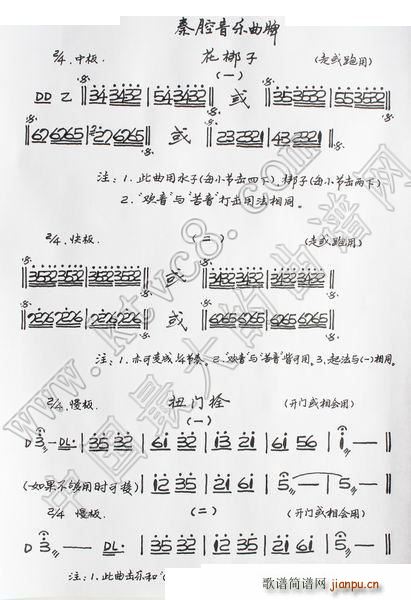 秦腔音乐曲牌
2/4 中板 花梆子 (走或跑用)
(一)
DD 乙 34 3432 | 54 3432 或 35 3532 | 55 3532
62 6265 | 22 6265 或 23 2321 | 43 2321
注:1.此曲用水子(每小节击四下),梆子(每小节击两下)
2."欢音"与"苦音"打击用法相同。
2/4 快板 (二) (走或跑用)
3532 3532 | 3532 3532 或 3432 3432 | 3432 3432
2226 2226 | 2226 2226 或 6265 6265 | 6265 6265
注:1.亦可变成与节奏。2."欢音"与"苦音"皆可用。3.起法与(一)相同。
2/4 慢板. 扭门栓 (开门或相会用)
(一)
D 3 — DL· | 35 32 | 61 32 | 13 21 | 61 56 | 1 —
(一如果不够用时可接) | 12 35 | 21 61 | 5 — | 5 —
2/4 慢板 (二) (开门或相会用)
D 3 — DL· | 35 32 | 12 35 | 21 61 | 5 —
注:1.此曲击乐和
www.ktvc8.com
中国最大的曲谱网
歌谱简谱网
jianpu.cn